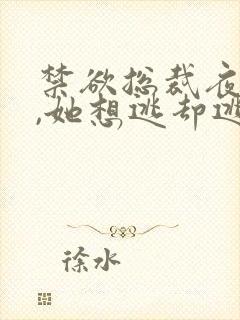 禁欲总裁夜
,她想逃却逃
徐水